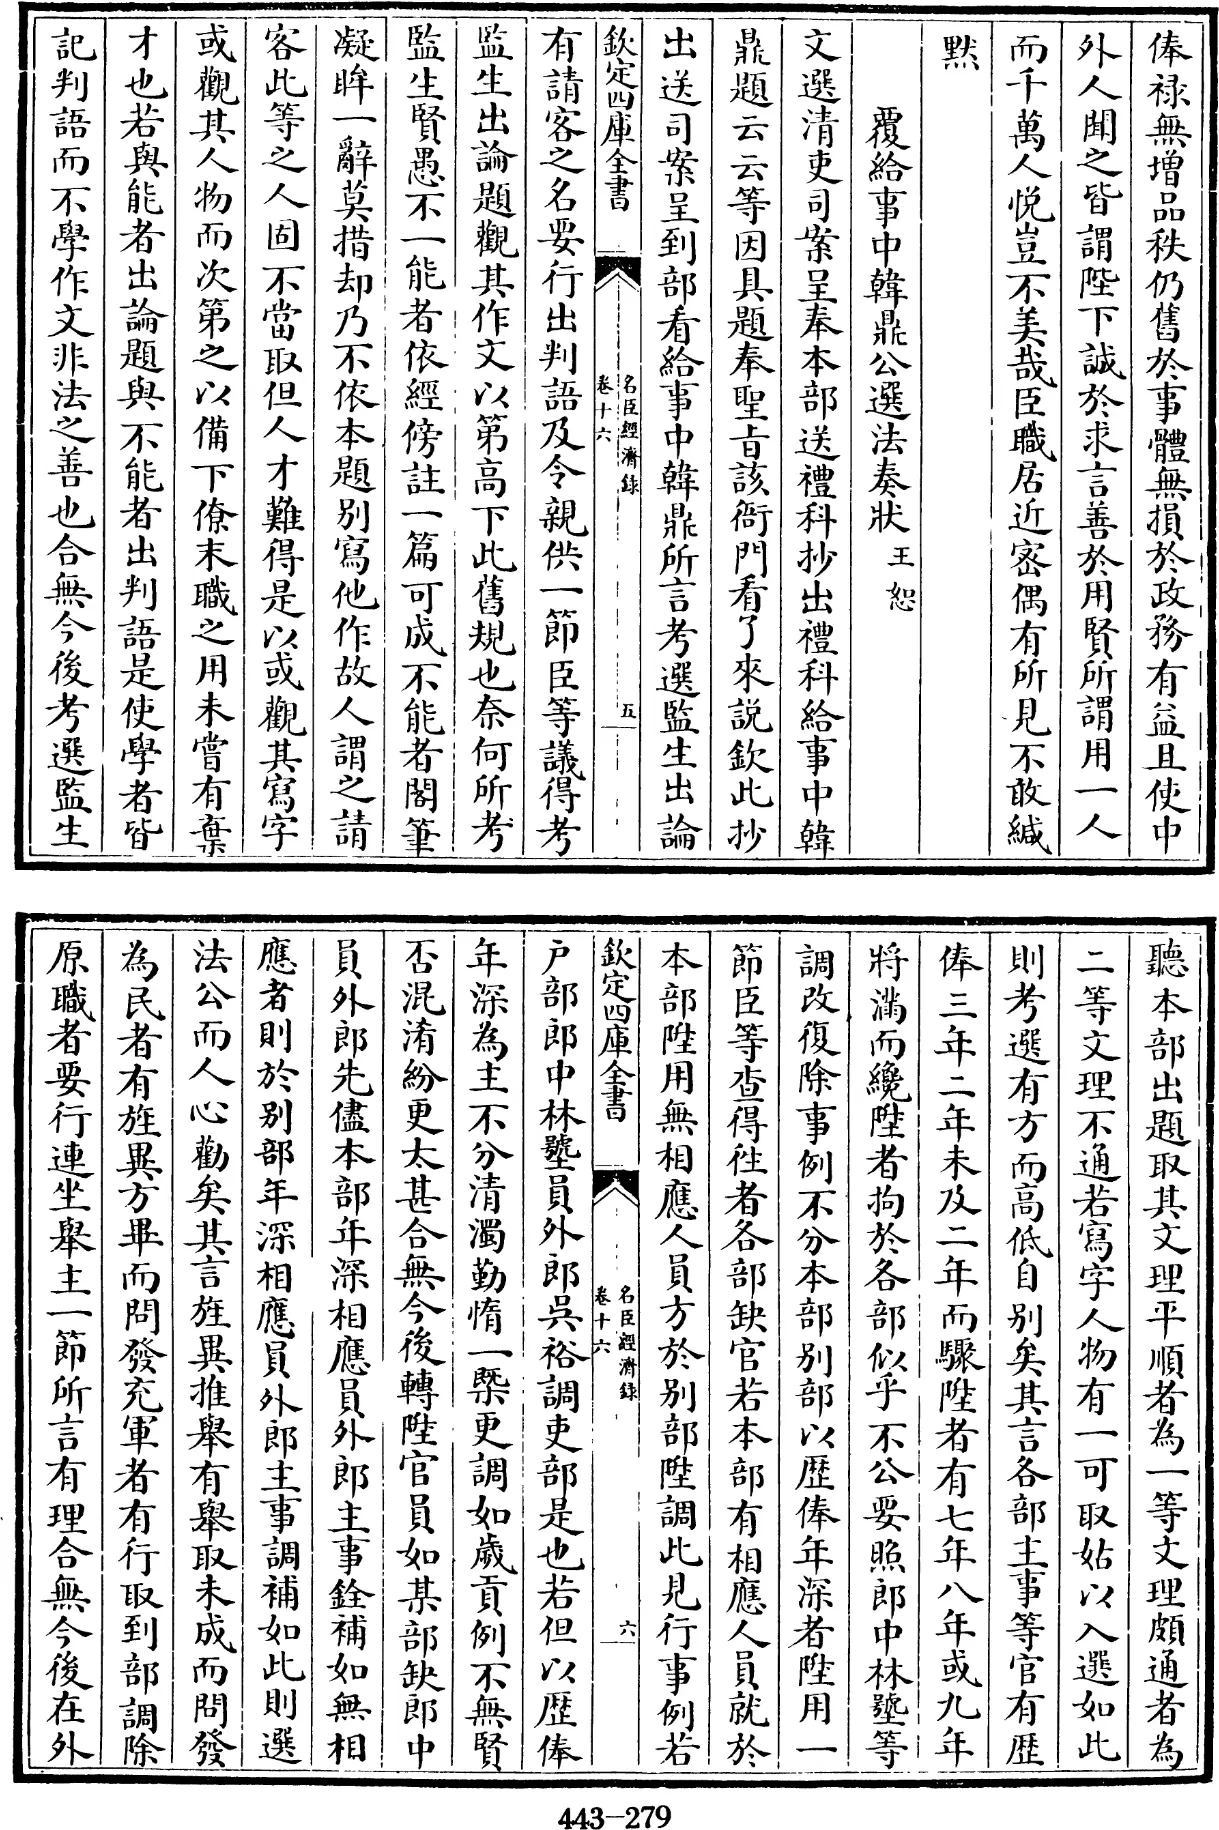 俸祿無增品秩仍舊於事體無損於政務有益且使中
外人聞之皆謂陛下誠於求言善於用賢所謂用一人
而千萬人悅豈不美哉臣職居近密偶有所見不敢緘
黙
覆給事中韓鼎公選法奏狀 王恕
文選清吏司案呈奉本部送禮科抄出禮科給事中韓
鼎題云云等因具題奉聖旨該衙門看了來說欽此抄
出送司案呈到部看給事中韓鼎所言考選監生出論
欽定四庫全書
名臣經濟錄
卷十六
五
有請客之名要行出判語及令親供一節臣等議得考
監生出論題觀其作文以第高下此舊規也奈何所考
監生賢愚不一能者依經傍註一篇可成不能者閣筆
凝眸一辭莫措却乃不依本題別寫他作故人謂之請
客此等之人固不當取但人才難得是以或觀其寫字
或觀其人物而次第之以備下僚末職之用未嘗有棄
才也若與能者出論題與不能者出判語是使學者皆
記判語而不學作文非法之善也合無今後考選監生
聽本部出題取其文理平順者為一等文理頗通者為
二等文理不通若寫字人物有一可取姑以入選如此
則考選有方而高低自別矣其言各部主事等官有歷
俸三年二年未及二年而驟陞者有七年八年或九年
將滿而纔陞者拘於各部似乎不公要照郎中林壂等
調改復除事例不分本部別部以歷俸年深者陞用一
節臣等查得徃者各部缺官若本部有相應人員就於
本部陞用無相應人員方於別部陞調此見行事例若
欽定四庫全書
名臣經濟錄
卷十六
六
户部郎中林壂員外郎吳裕調吏部是也若但以歷俸
年深為主不分清濁勤惰一槩更調如歲貢例不無賢
否混淆紛更太甚合無今後轉陞官員如某部缺郎中
員外郎先儘本部年深相應員外郎主事銓補如無相
應者則於別部年深相應員外郎主事調補如此則選
法公而人心勸矣其言旌異推舉有舉取未成而問發
為民者有旌異方畢而問發充軍者有行取到部調除
原職者要行連坐舉主一節所言有理合無今後在外
443-279